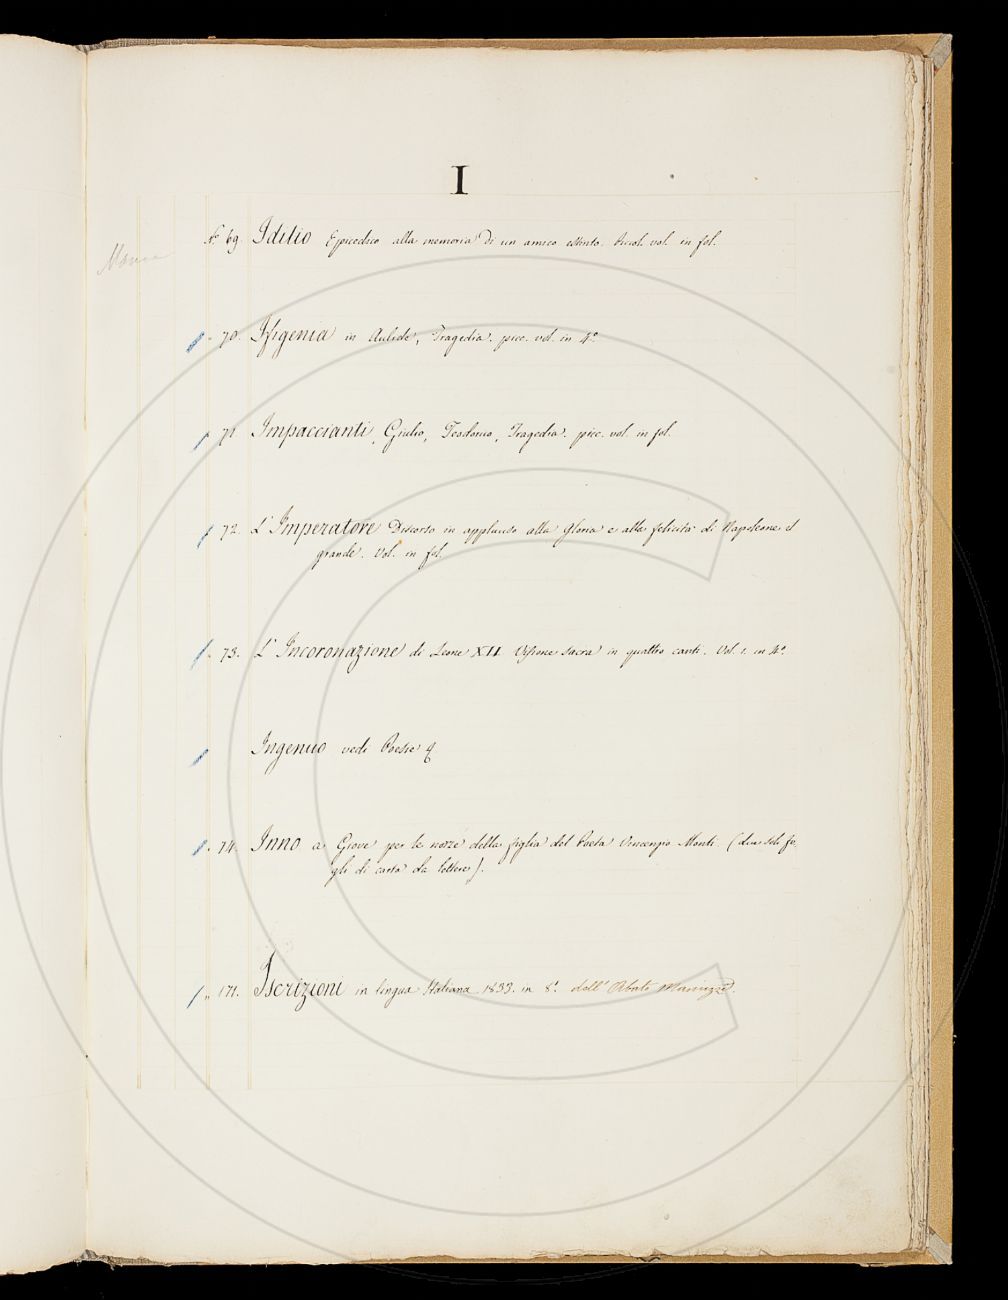 I
N.º 69. Idilio Epicedico alla memoria di un amico estinto. Piccol. vol. in fol.
Manca
" 70. Ifigenia in Aulide, Tragedia. picc. vol. in 4.º
" 71. Impaccianti, Giulio, Teodorico, Tragedia. picc. vol. in fol.
" 72. L' Imperatore Discorso in applauso alla Gloria e alla felicità di Napoleone il
grande. Vol. in fol.
" 73. L' Incoronazione di Leone XII Visione sacra in quattro canti. Vol. 1. in 4.º
Ingenuo vedi Poesie
" 74. Inno a Giove per le nozze della figlia del Poeta Vincenzio Monti. (due soli fo
gli di carta da lettere).
" 171. Iscrizioni in lingua Italiana 1833. in 8.º dell' Abate Manuzzi.